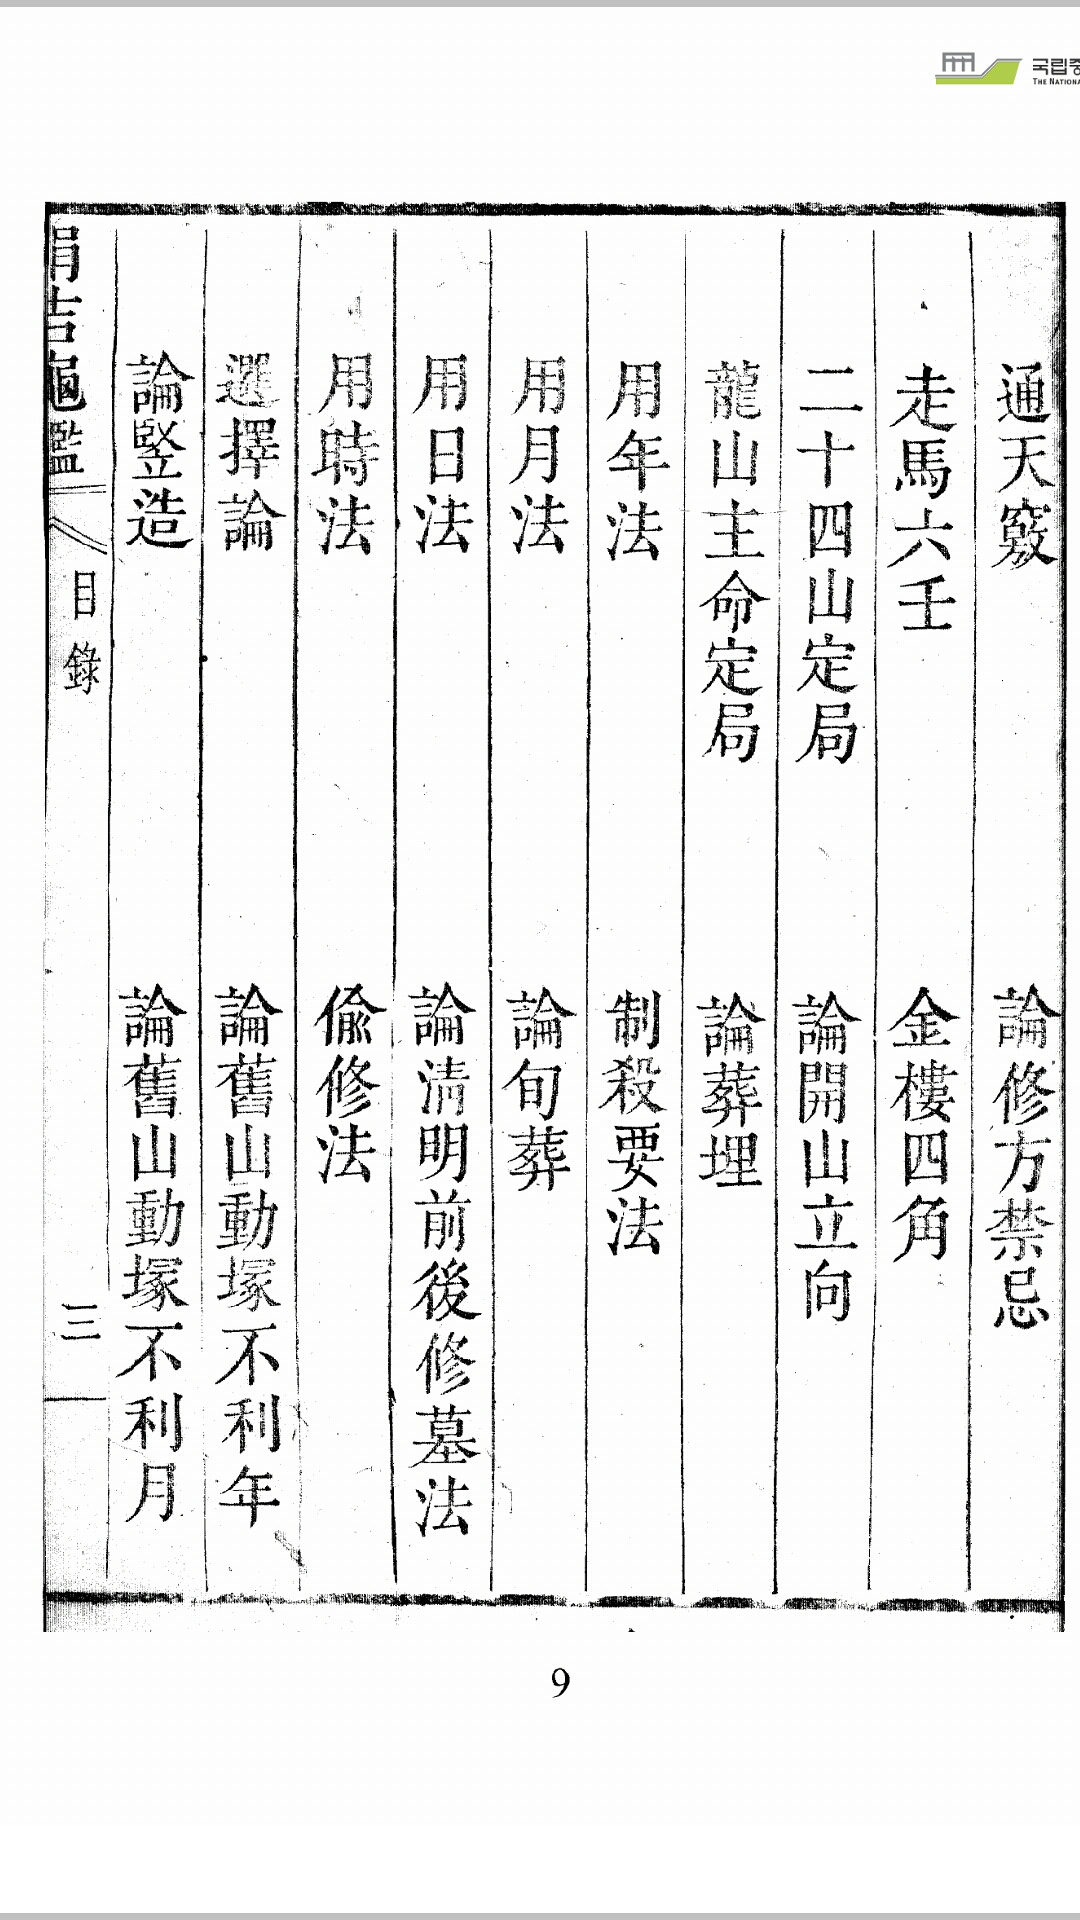 국립중
THE NATIONA
通天竅 論修方禁忌
走馬六壬 金樓四角
二十四山定局 論開山立向
龍山主命定局 論葬埋
用年法 制殺要法
用月法 論旬葬
用日法 論淸明前後修墓法
用時法 偸修法
選擇論 論舊山動塚不利年
論竪造 論舊山動塚不利月
涓吉龜鑑 目錄 三
9